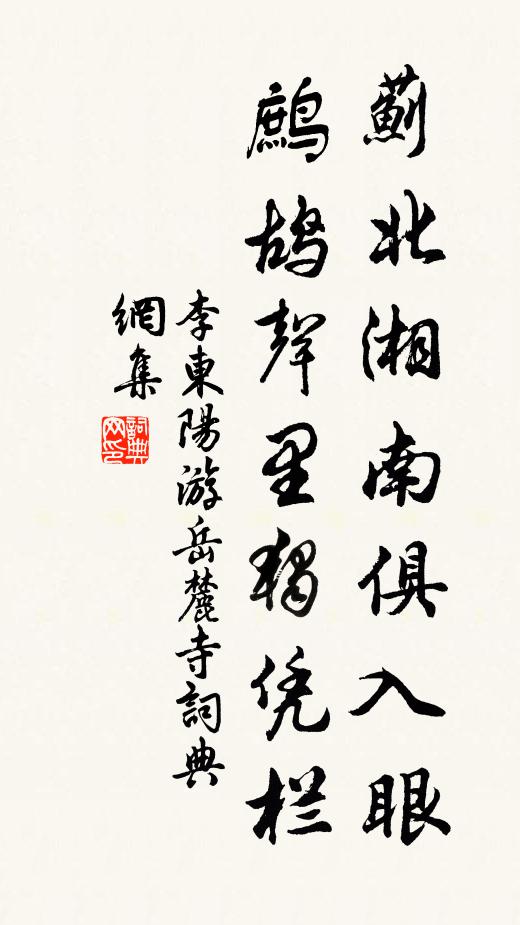 薊北湘南俱入眼
鷓鴣聲里獨凭栏
李東陽游岳麓寺詞典
網集
詞典
网印